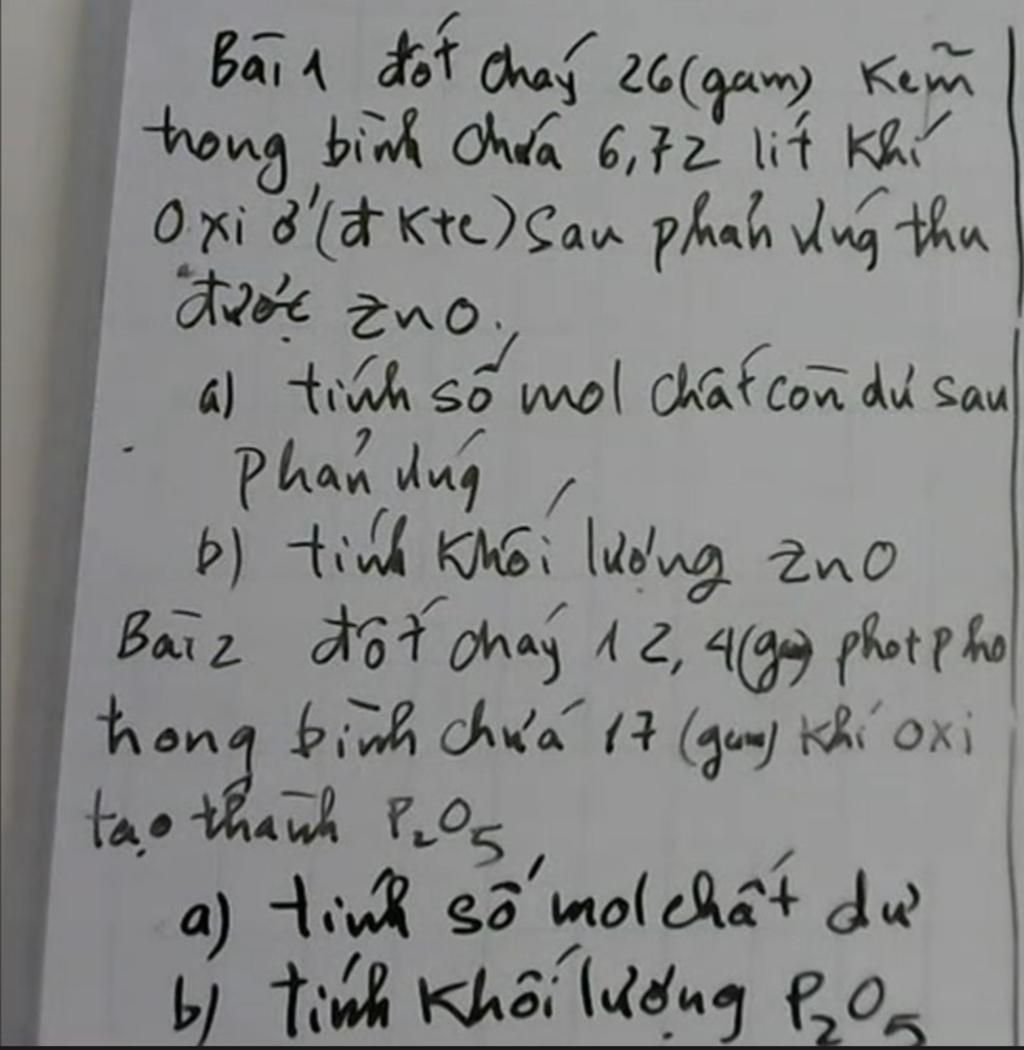 Bài 1 đốt cháy 26(gam) Kẽm
trong bình chứa 6,72 lít khí
oxi ở (đKtc) Sau phản ứng thu
được ZnO.
a) tính số mol chất còn dư sau
phản ứng
b) tính khối lượng ZnO
Bài 2 đốt cháy 12,4(gam) photpho
trong bình chứa 17 (gam) khí oxi
tạo thành P₂O₅
a) tính số mol chất dư
b) tính khối lượng P₂O₅